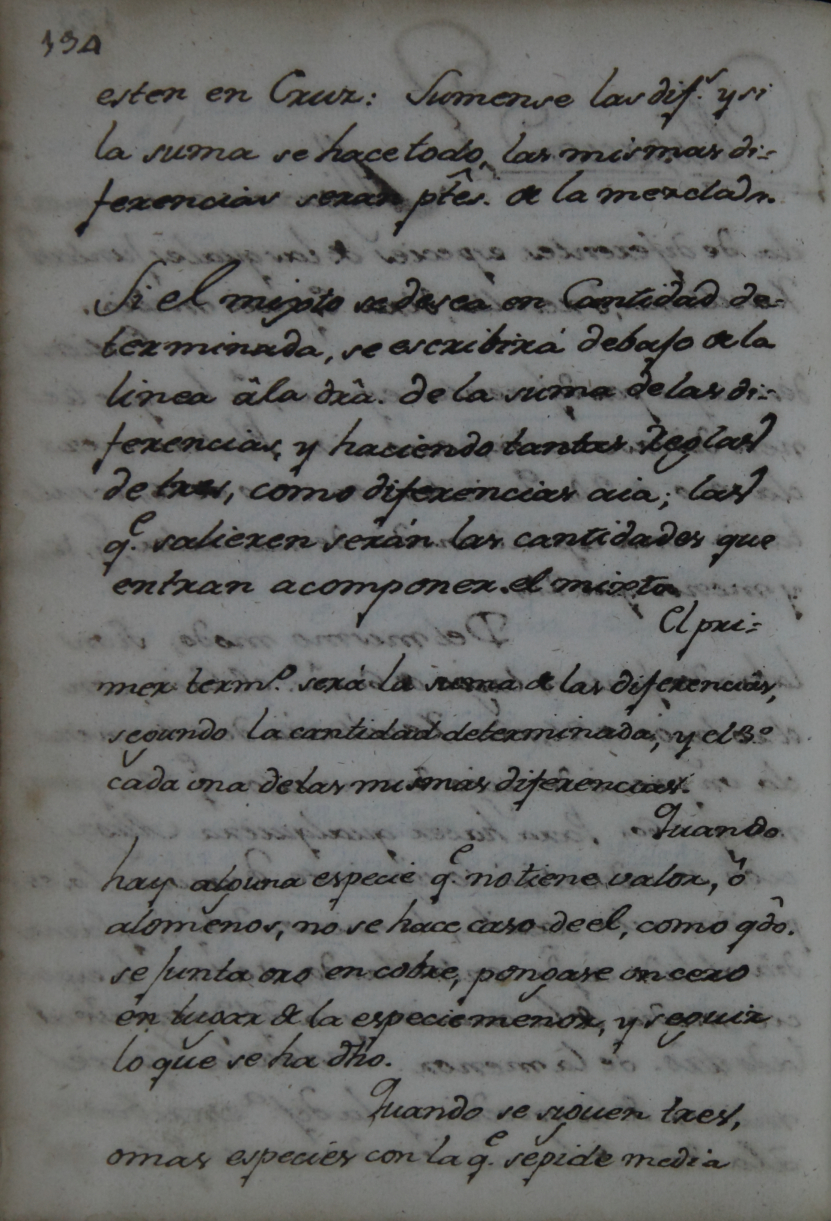 134
esten en Cruz: Sumense las dif.s y si
la suma se hace todo, las mismas di=
ferencias seran ptês. de la mezclad.
Si el mixto se desea en Cantidad de=
terminada, se escribirá debajo de la
linea âla drâ. de la suma de las di=
ferencias, y haciendo tantas Reglas
de tres, como diferencias aia; las
q.e salieren serán las cantidades que
entran a componer el mixto.
El pri=
mer term.o será la suma de las diferencias,
segundo la cantidad determinada, y el 3.o
cada una de las mismas diferencias.
Quando
hay alguna especie q.e no tiene valor, ô
alomenos, no se hace caso de el, como qdô.
se junta oro en cobre, pongase un cero
en lugar de la especie menor, y seguir
lo que se ha dho.
Quando se siguen tres,
o mas especies con la q.e se pide media